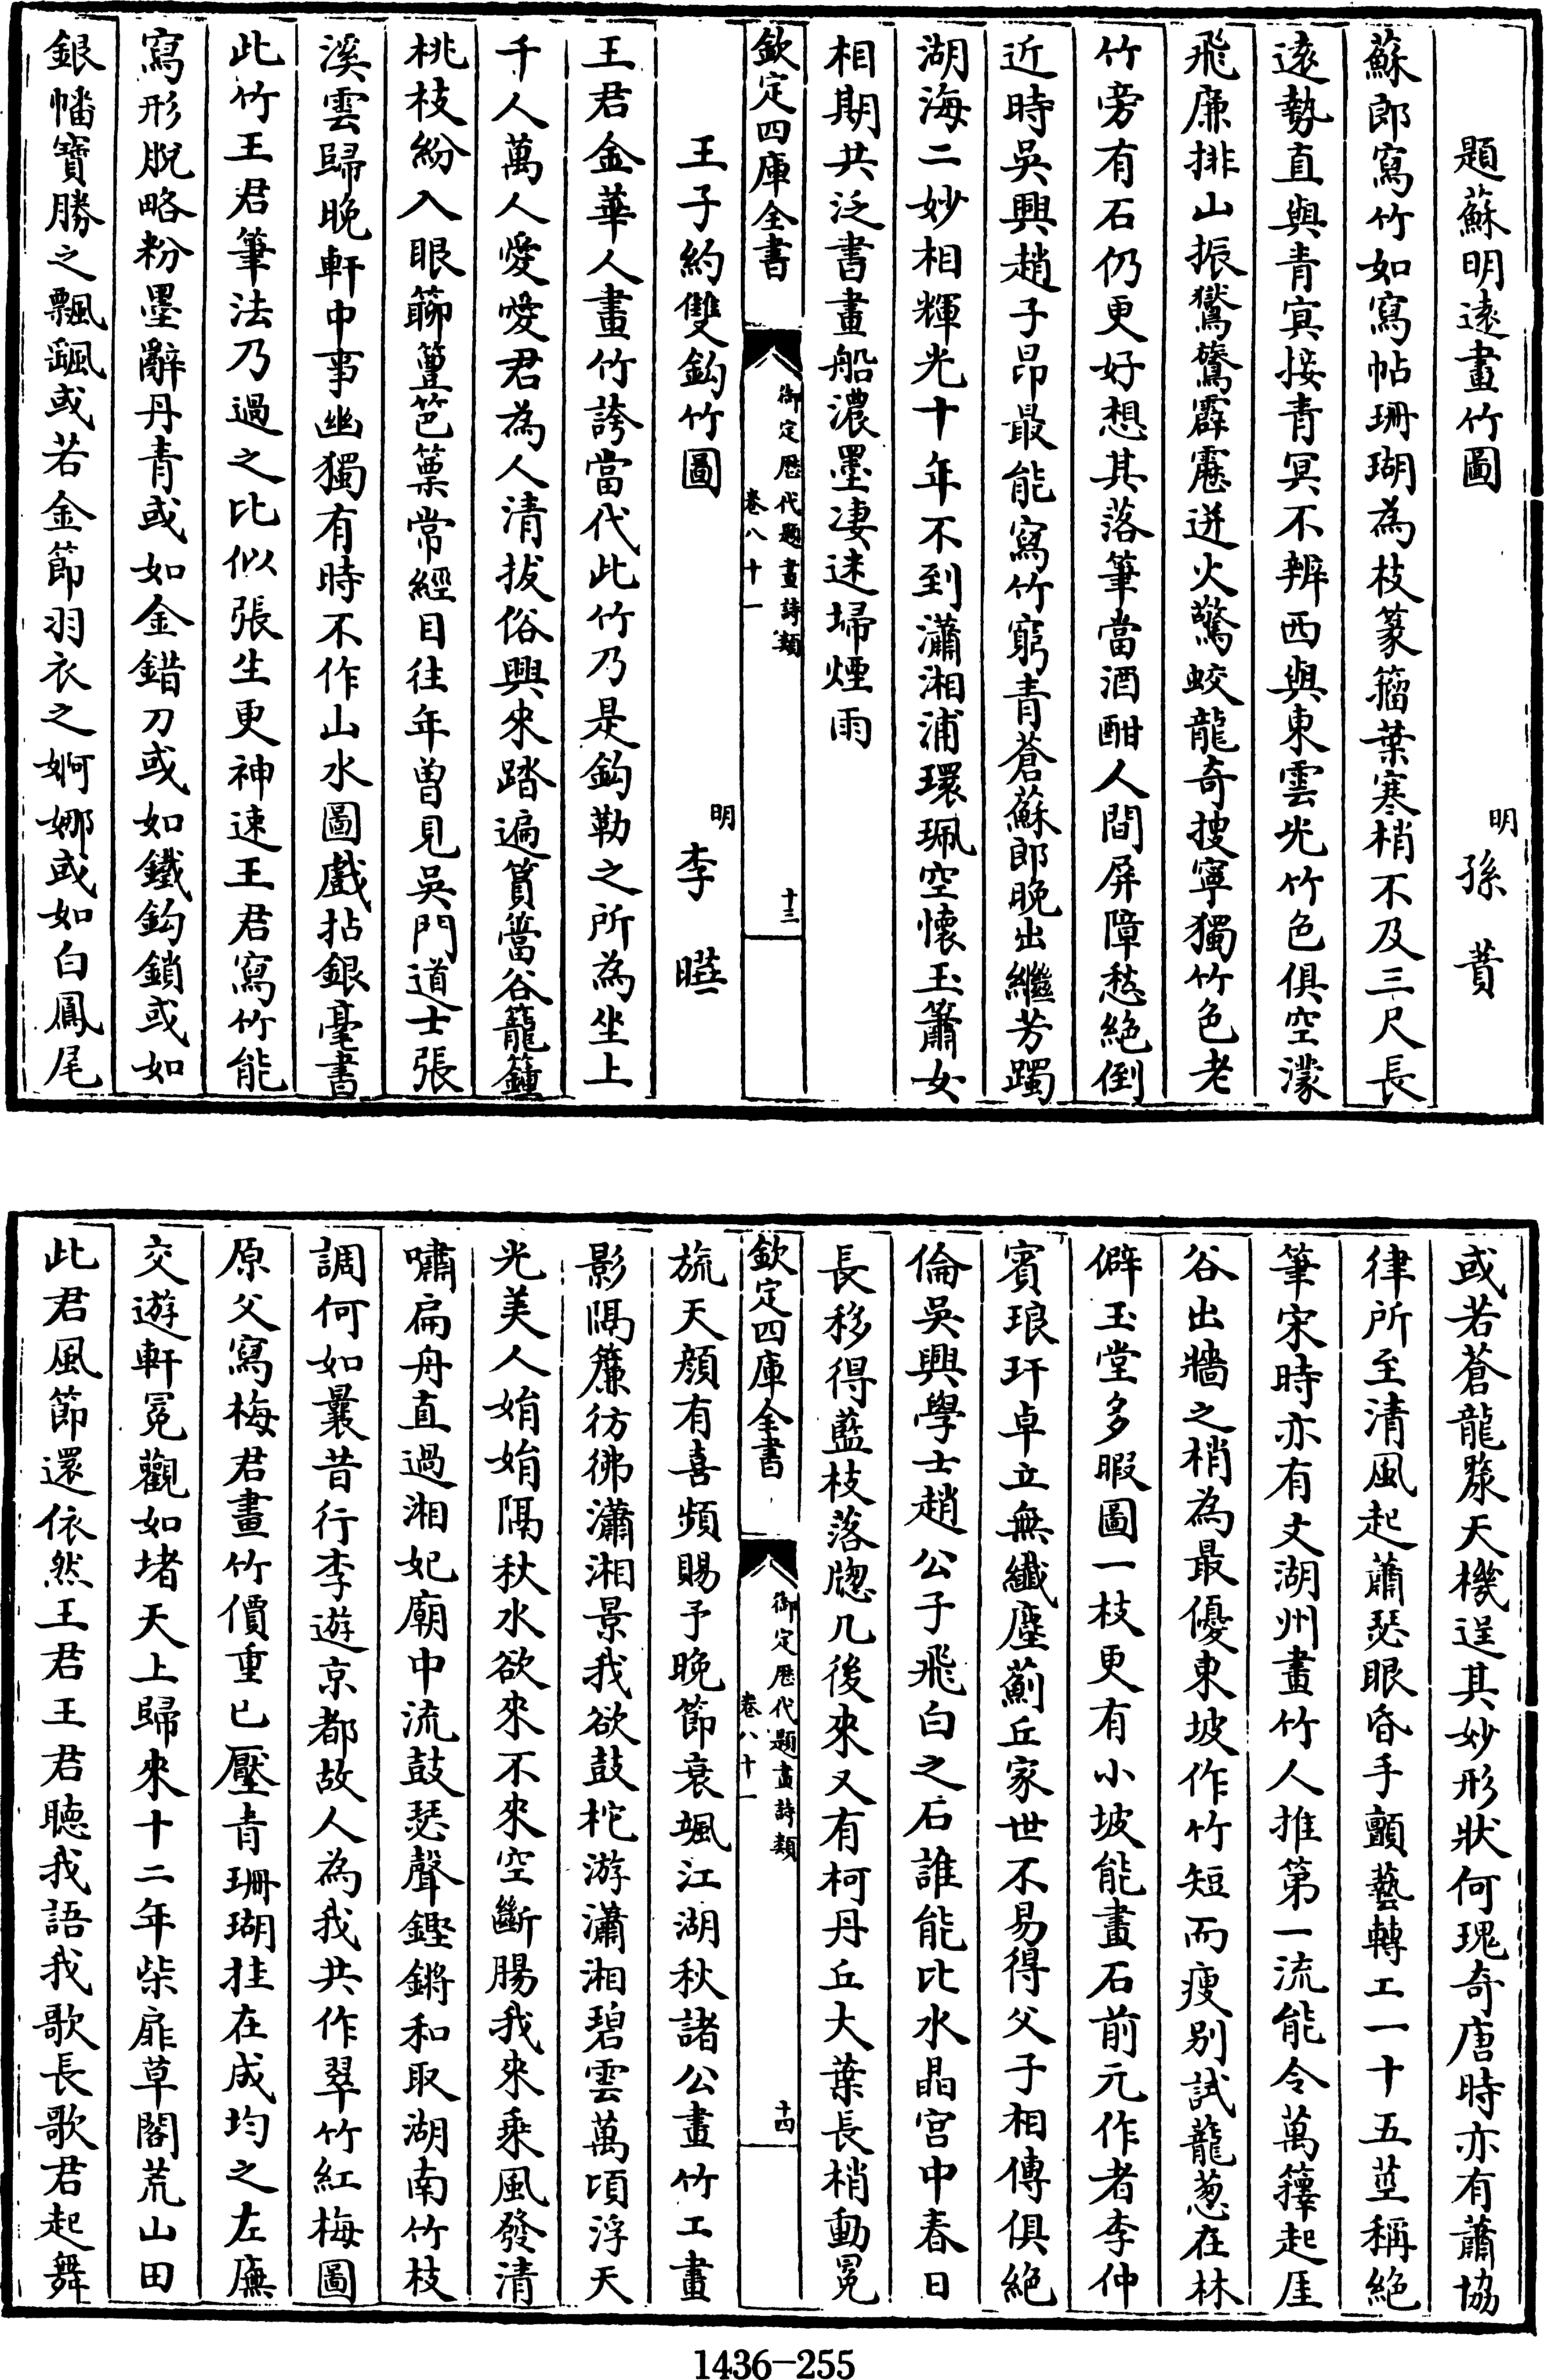 題蘇明遠畫竹圖
明
孫蕡
蘇郎寫竹如寫帖珊瑚為枝篆籀葉寒梢不及三尺長
遠勢直與青㝠接青冥不辨西與東雲光竹色俱空濛
飛廉排山振鸑鷟霹靂迸火驚蛟龍奇搜寧獨竹色老
竹旁有石仍更好想其落筆當酒酣人間屏障愁絕倒
近時吳興趙子昂最能寫竹窮青蒼蘇郎晚出繼芳躅
湖海二妙相輝光十年不到瀟湘浦環珮空懷玉簫女
相期共泛書畫船濃墨淒迷埽煙雨
欽定四庫全書
御定歷代題畫詩類
卷八十一
十三
王子約雙鈎竹圖
明
李曄
王君金華人畫竹誇當代此竹乃是鈎勒之所為坐上
千人萬人愛愛君為人清拔俗興來踏遍篔簹谷籠鐘
桃枝紛入眼䈁簹笆篥常經目往年曽見吳門道士張
溪雲歸晚軒中事幽獨有時不作山水圖戲拈銀毫書
此竹王君筆法乃過之比似張生更神速王君寫竹能
寫形脫略粉墨辭丹青或如金錯刀或如鐵鈎鎖或如
銀幡寶勝之飄颻或若金節羽衣之婀娜或如白鳳尾
或若蒼龍漦天機逞其妙形狀何瑰奇唐時亦有蕭協
律所至清風起蕭瑟眼昏手顫藝轉工一十五莖稱絕
筆宋時亦有文湖州畫竹人推第一流能令萬籜起厓
谷出牆之梢為最優東坡作竹短而瘦别試龍葱在林
僻玉堂多暇圖一枝更有小坡能畫石前元作者李仲
賓琅玕卓立無纖塵薊丘家世不易得父子相傳俱絕
倫吳興學士趙公子飛白之石誰能比水晶宫中春日
長移得藍枝落牕几後來又有柯丹丘大葉長梢動冕
欽定四庫全書
御定歷代題畫詩類
卷八十一
十四
旒天顔有喜頻賜予晚節衰颯江湖秋諸公畫竹工畫
影隔簾彷彿瀟湘景我欲鼓柁游瀟湘碧雲萬頃浮天
光美人娟娟隔秋水欲來不來空斷腸我來乘風發清
嘯扁舟直過湘妃廟中流鼓瑟聲鏗鏘和取湖南竹枝
調何如曩昔行李遊京都故人為我共作翠竹紅梅圖
原父寫梅君畫竹價重已壓青珊瑚挂在成均之左廡
交遊軒冕觀如堵天上歸來十二年柴扉草閣荒山田
此君風節還依然王君王君聽我語我歌長歌君起舞
1436-255